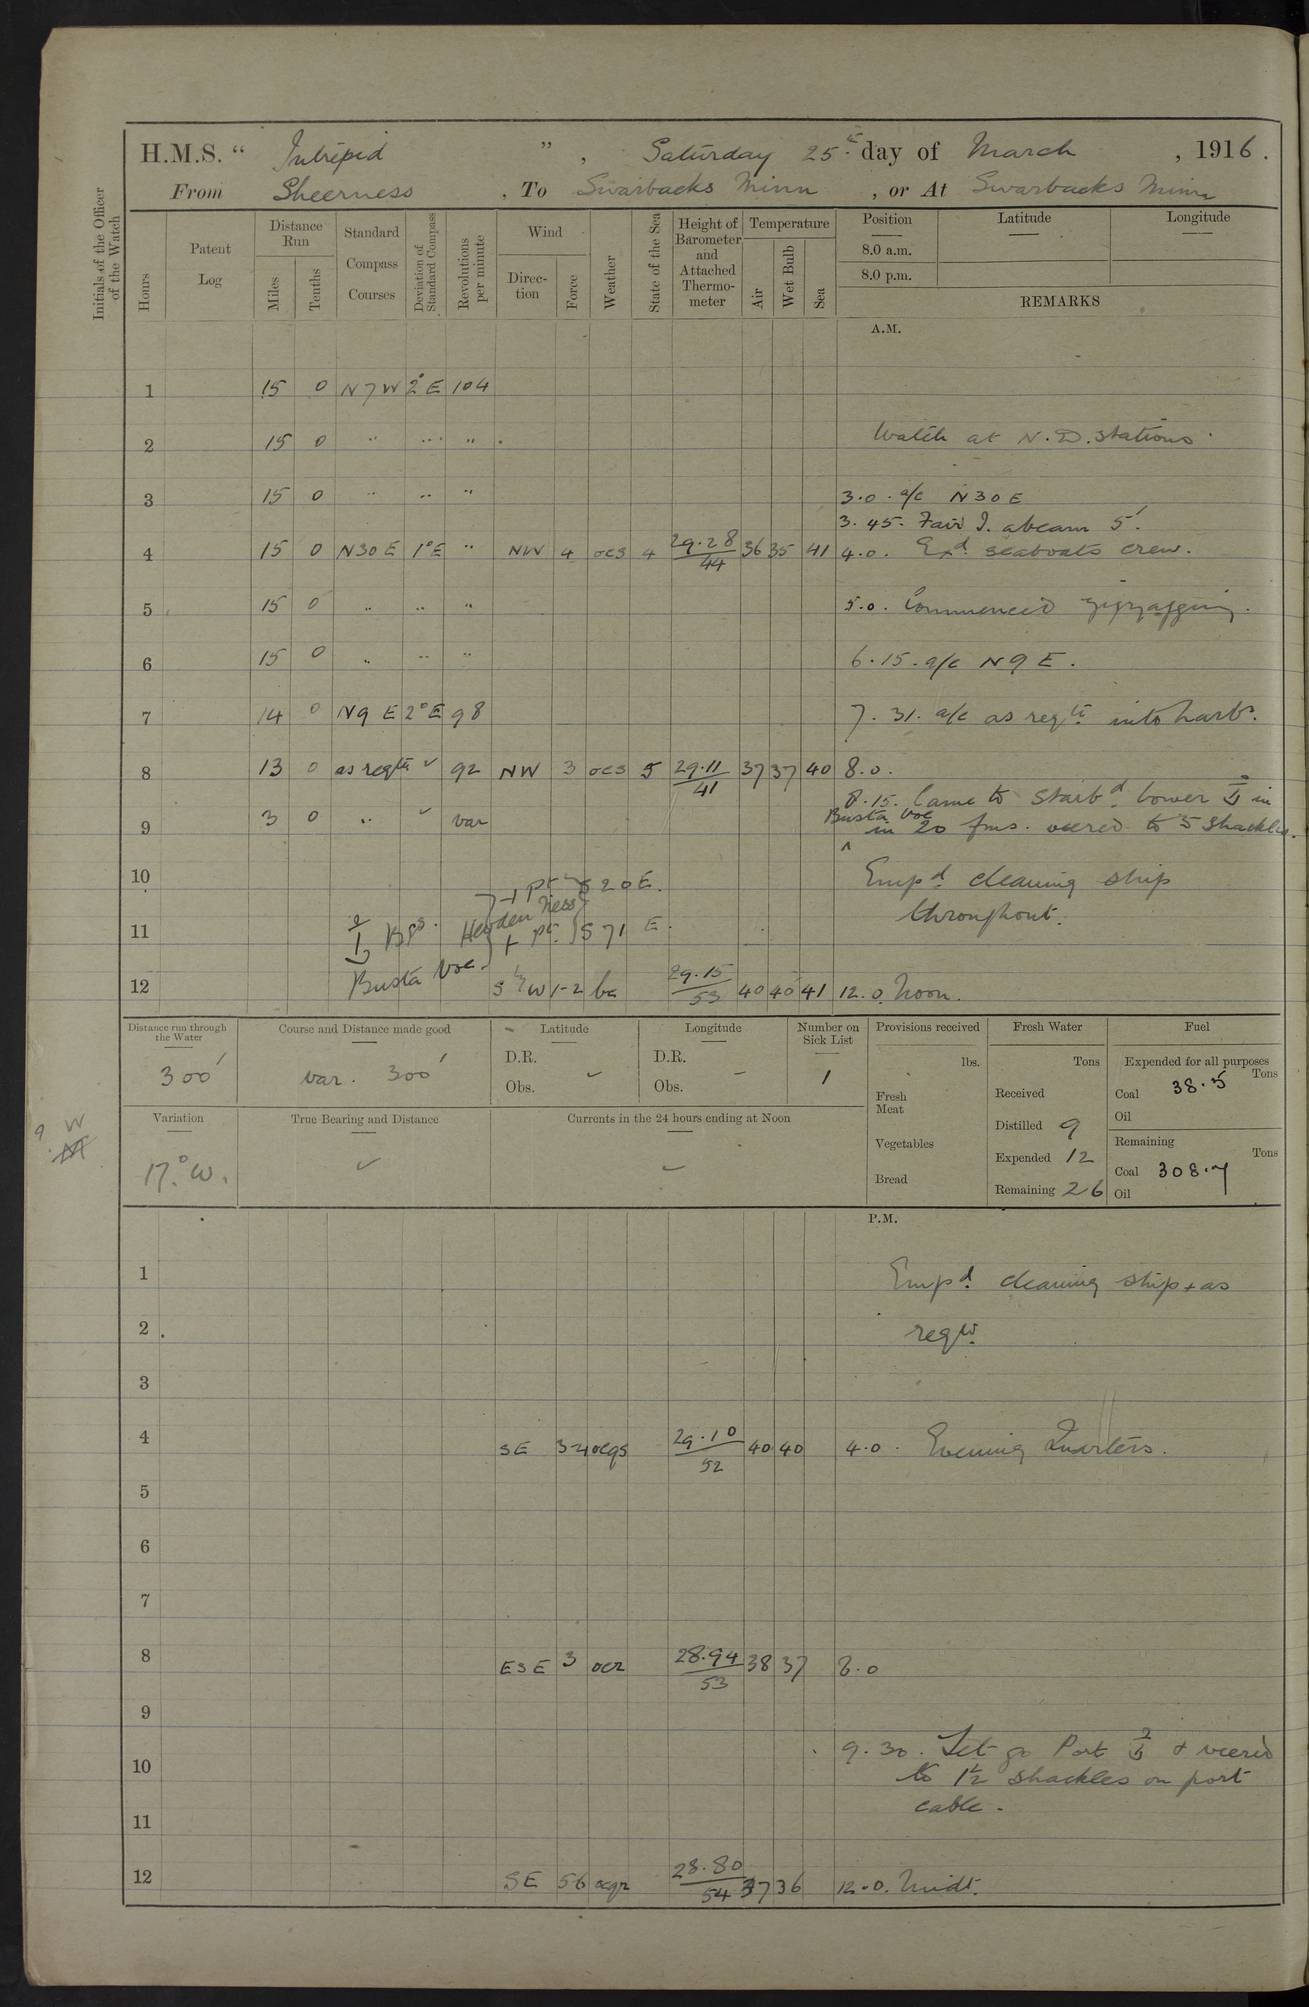 H.M.S. “ Intrepid ” , Saturday 25th day of March , 1916 .
From Sheerness , To Swarbacks Minn , or At Swarbacks Minn
Initials of the Officer of the Watch
Hours
Patent Log
Distance Run
Miles
Tenths
Standard Compass Courses
Deviation of Standard Compass
Revolutions per minute
Wind
Direction
Force
Weather
State of the Sea
Height of Barometer and Attached Thermometer
Temperature
Air
Wet Bulb
Sea
Position
Latitude
Longitude
8.0 a.m.
8.0 p.m.
REMARKS
A.M.
1 15 0 N7W 2°E 104
2 15 0 " " " Watch at N.D. stations.
3 15 0 " " " 3.0. a/c N30E
3.45. Fair I. abeam 5'.
4 15 0 N30E 1°E " NW 4 ocs 4 29.28/44 36 35 41 4.0. Exd. seaboats crew.
5 15 0 " " " 5.0. Commenced zigzagging.
6 15 0 " " " 6.15. a/c N9E.
7 14 0 N9E 2°E 98 7.31. a/c as reqte into harbr.
8 13 0 as reqte ✓ 92 NW 3 ocs 5 29.11/41 37 37 40 8.0.
8.15. Came to Starbd. bower ⚓ in
Busta Voe
9 3 0 " ✓ var in 20 fms. veered to 5 shackles.
10 Empd. cleaning ship
throughout.
⚓ Bgs. Heoden Ness } + pt S20E.
11 + pt. } S71E.
Busta Voe
12 S by W 1-2 bc 29.15/53 40 40 41 12.0. Noon.
Distance run through the Water
300'
Course and Distance made good
var. 300'
Latitude
D.R.
Obs. ✓
Longitude
D.R.
Obs. –
Number on Sick List
1
Provisions received
lbs.
Fresh Meat
Vegetables
Bread
Fresh Water
Tons
Received
Distilled 9
Expended 12
Remaining 26
Fuel
Expended for all purposes
Tons
Coal 38.5
Oil
Remaining
Tons
Coal 308.7
Oil
9 W
Variation
17.°W.
True Bearing and Distance
✓
Currents in the 24 hours ending at Noon
✓
P.M.
1 Empd. cleaning ship + as
2 reqte.
3
4 SE 3-4 ocqs 29.10/52 40 40 4.0. Evening Quarters.
5
6
7
8 ESE 3 ocr 28.94/53 38 37 8.0
9
9.30. Let go Port ⚓ & veered
10 to 1½ shackles on port
cable.
11
12 SE 56 ocqr 28.80/54 37 36 12.0. Midt.